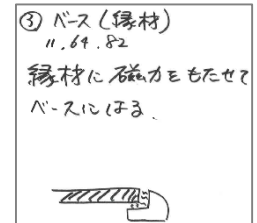 ③ ベース(縁材)
11.64.82
縁材に磁力をもたせて
ベースにはる.